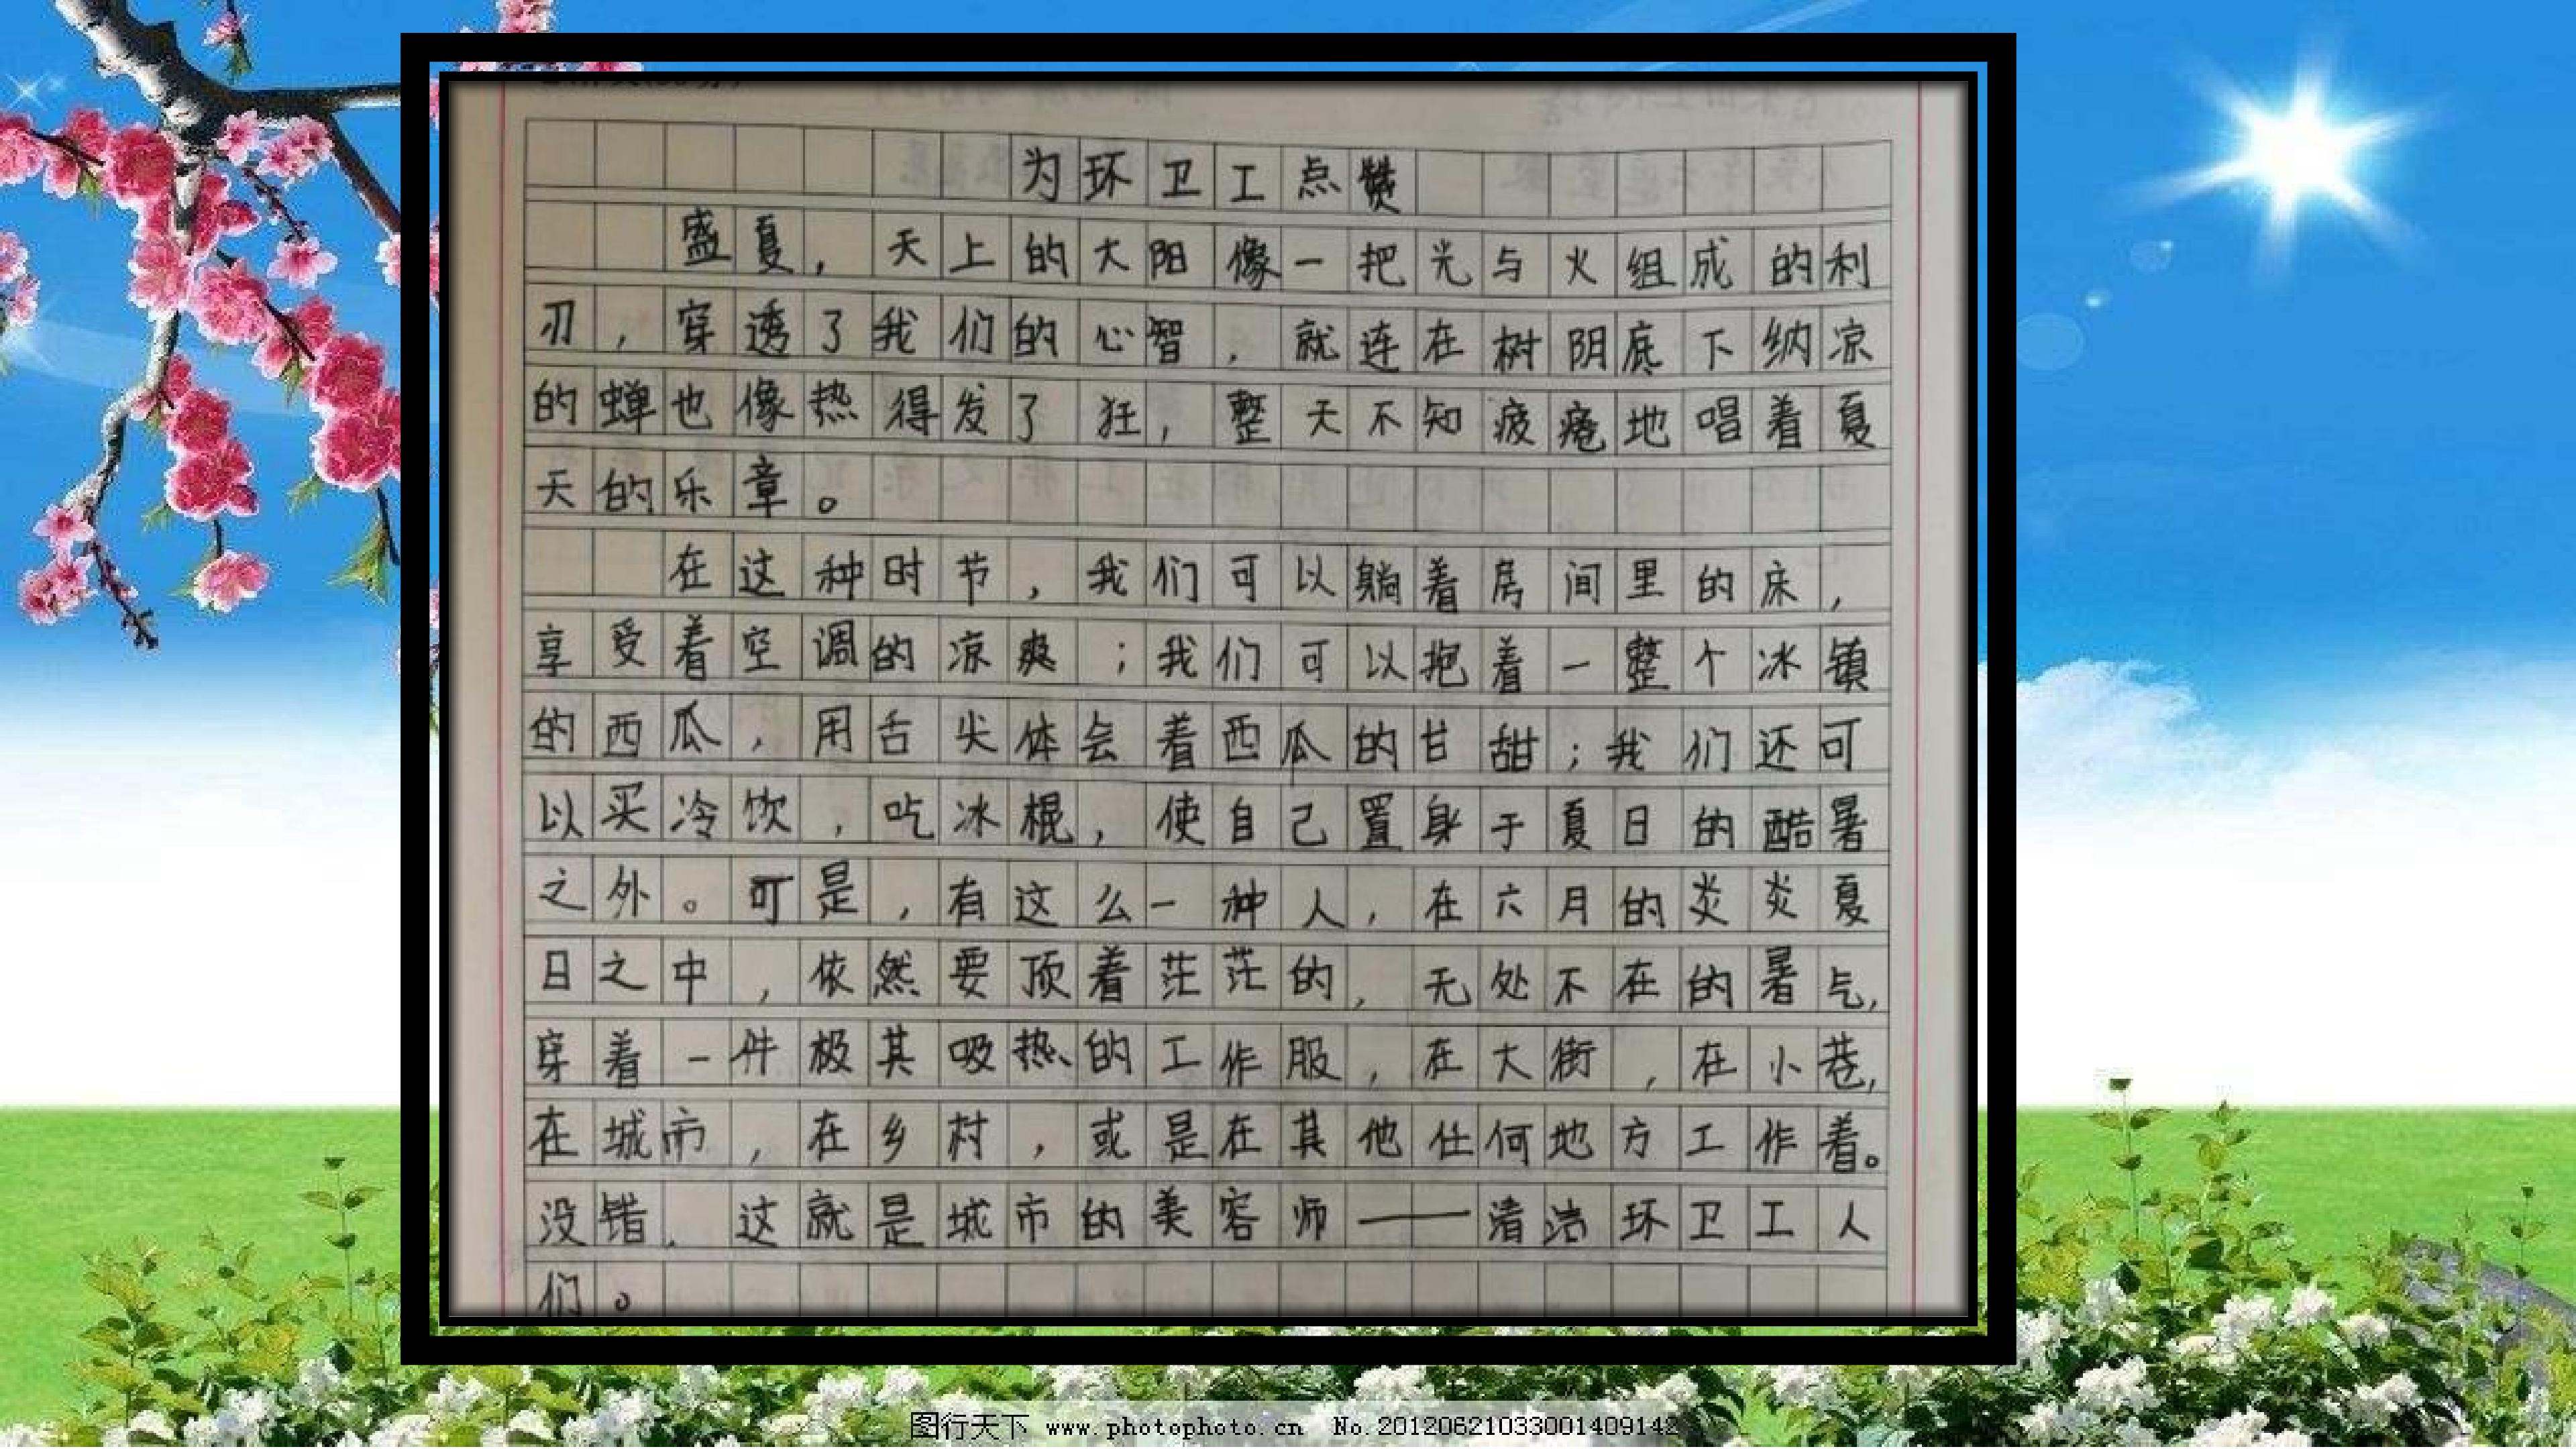 为环卫工点赞
盛夏，天上的大阳像一把光与火组成的利
刃，穿透了我们的心智，就连在树阴底下纳凉
的蝉也像热得发了狂，整天不知疲疮地唱着夏
天的乐章。
在这种时节，我们可以躺着房间里的床，
享受着空调的凉爽；我们可以抱着一整个冰镇
的西瓜，用舌尖体会着西瓜的甘甜；我们还可
以买冷饮，吃冰棍，使自己置身于夏日的酷暑
之外。可是，有这么一种人，在六月的炎炎夏
日之中，依然要顶着茫茫的，无处不在的暑气，
穿着一件极其吸热的工作服，在大街，在小巷，
在城市，在乡村，或是在其他任何地方工作着。
没错，这就是城市的美容师——清洁环卫工人
们。
图行天下 www.photophoto.cn No.20120621033001409142